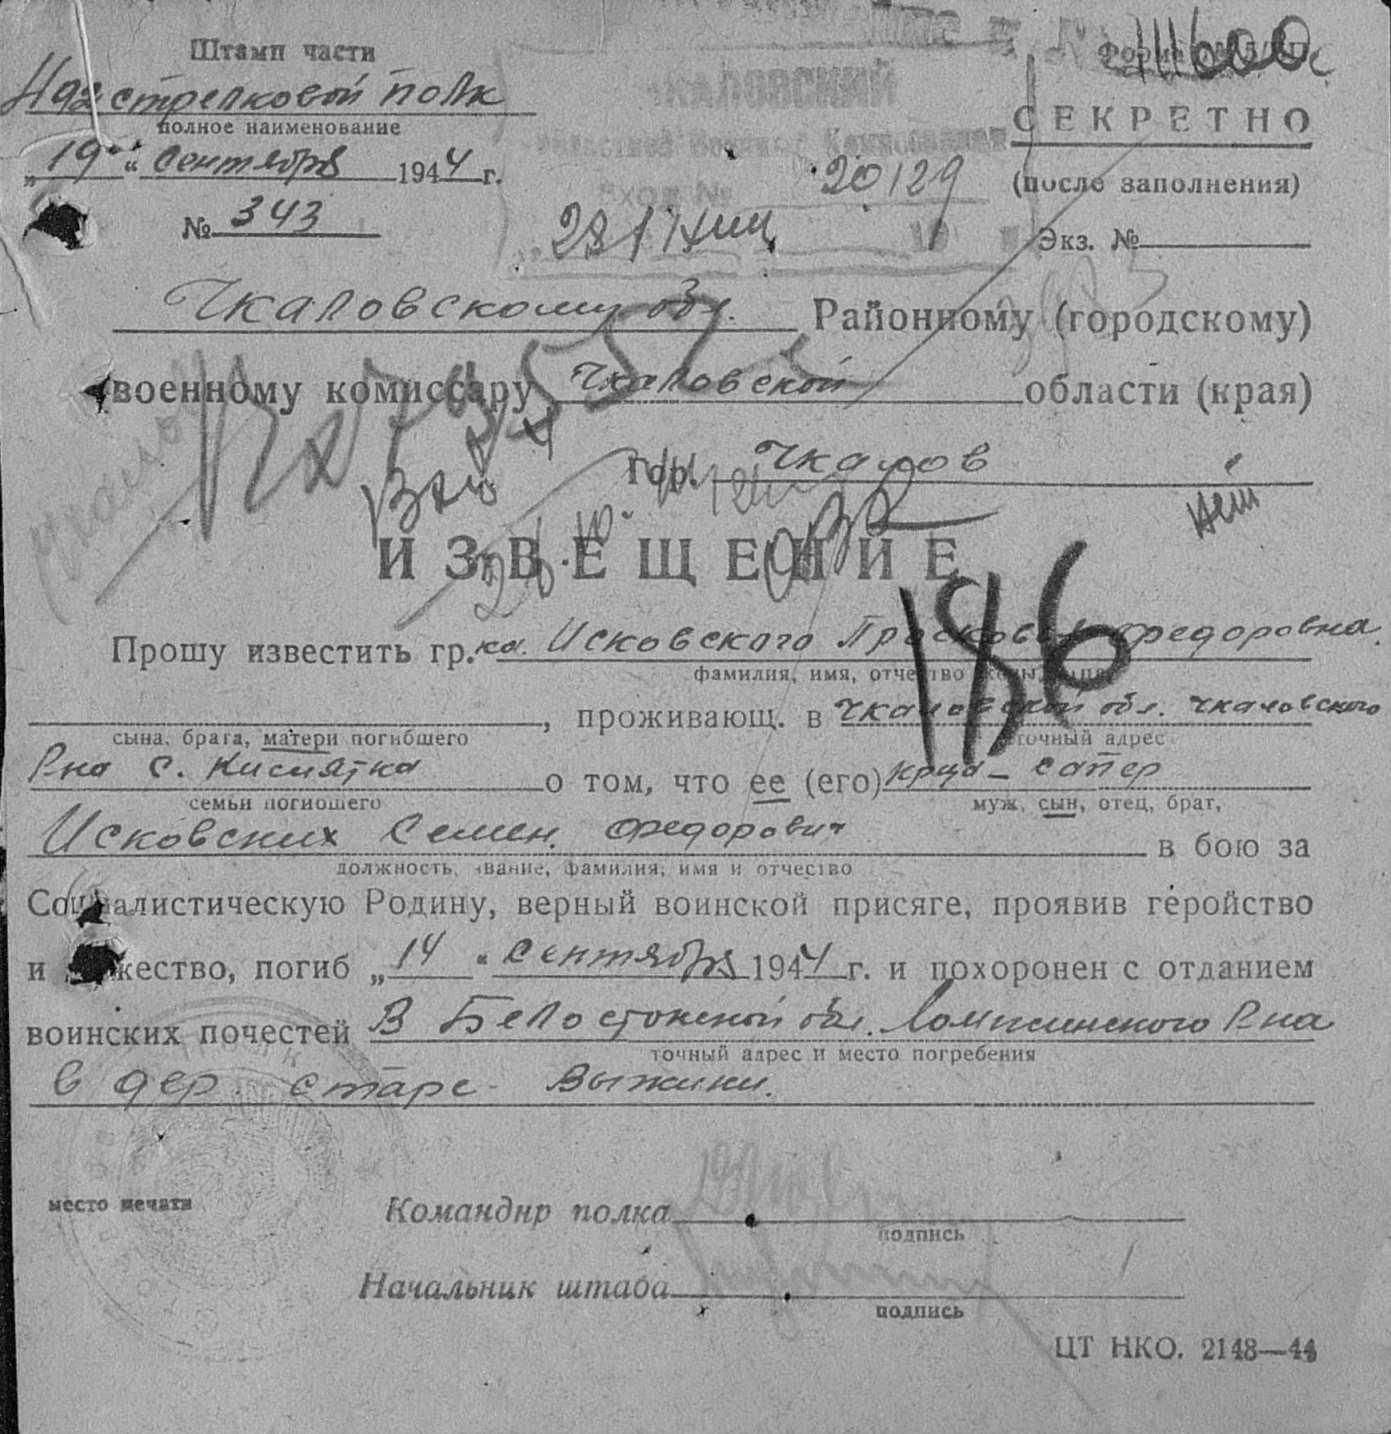 Штамп части
стрелковой полк
полное наименование
СЕКРЕТНО
„19“ сентября 1944 г.
20129
(после заполнения)
№ 343
Экз. №
Чкаловскому обл. Районному (городскому)
военному комиссару Чкаловской области (края)
гор. Чкалов
Нет
ИЗВЕЩЕНИЕ
186
Прошу известить гр.ка. Исковского Прасковья Федоровна
фамилия, имя, отчество
, проживающ. в Чкаловской обл. Чкаловского
сына, брата, матери погибшего точный адрес
Рна с. о том, что ее (его) Крца - сапер
семьи погибшего муж, сын, отец, брат,
Исковских Семен Федорович в бою за
должность, звание, фамилия, имя и отчество
Социалистическую Родину, верный воинской присяге, проявив геройство
и мужество, погиб „14“ сентября 1944 г. и похоронен с отданием
воинских почестей В Белостокской обл. Ломжинского Рна
точный адрес и место погребения
в дер. Старе- Выжики.
место печати
Командир полка
подпись
Начальник штаба
подпись
ЦТ НКО. 2148—44